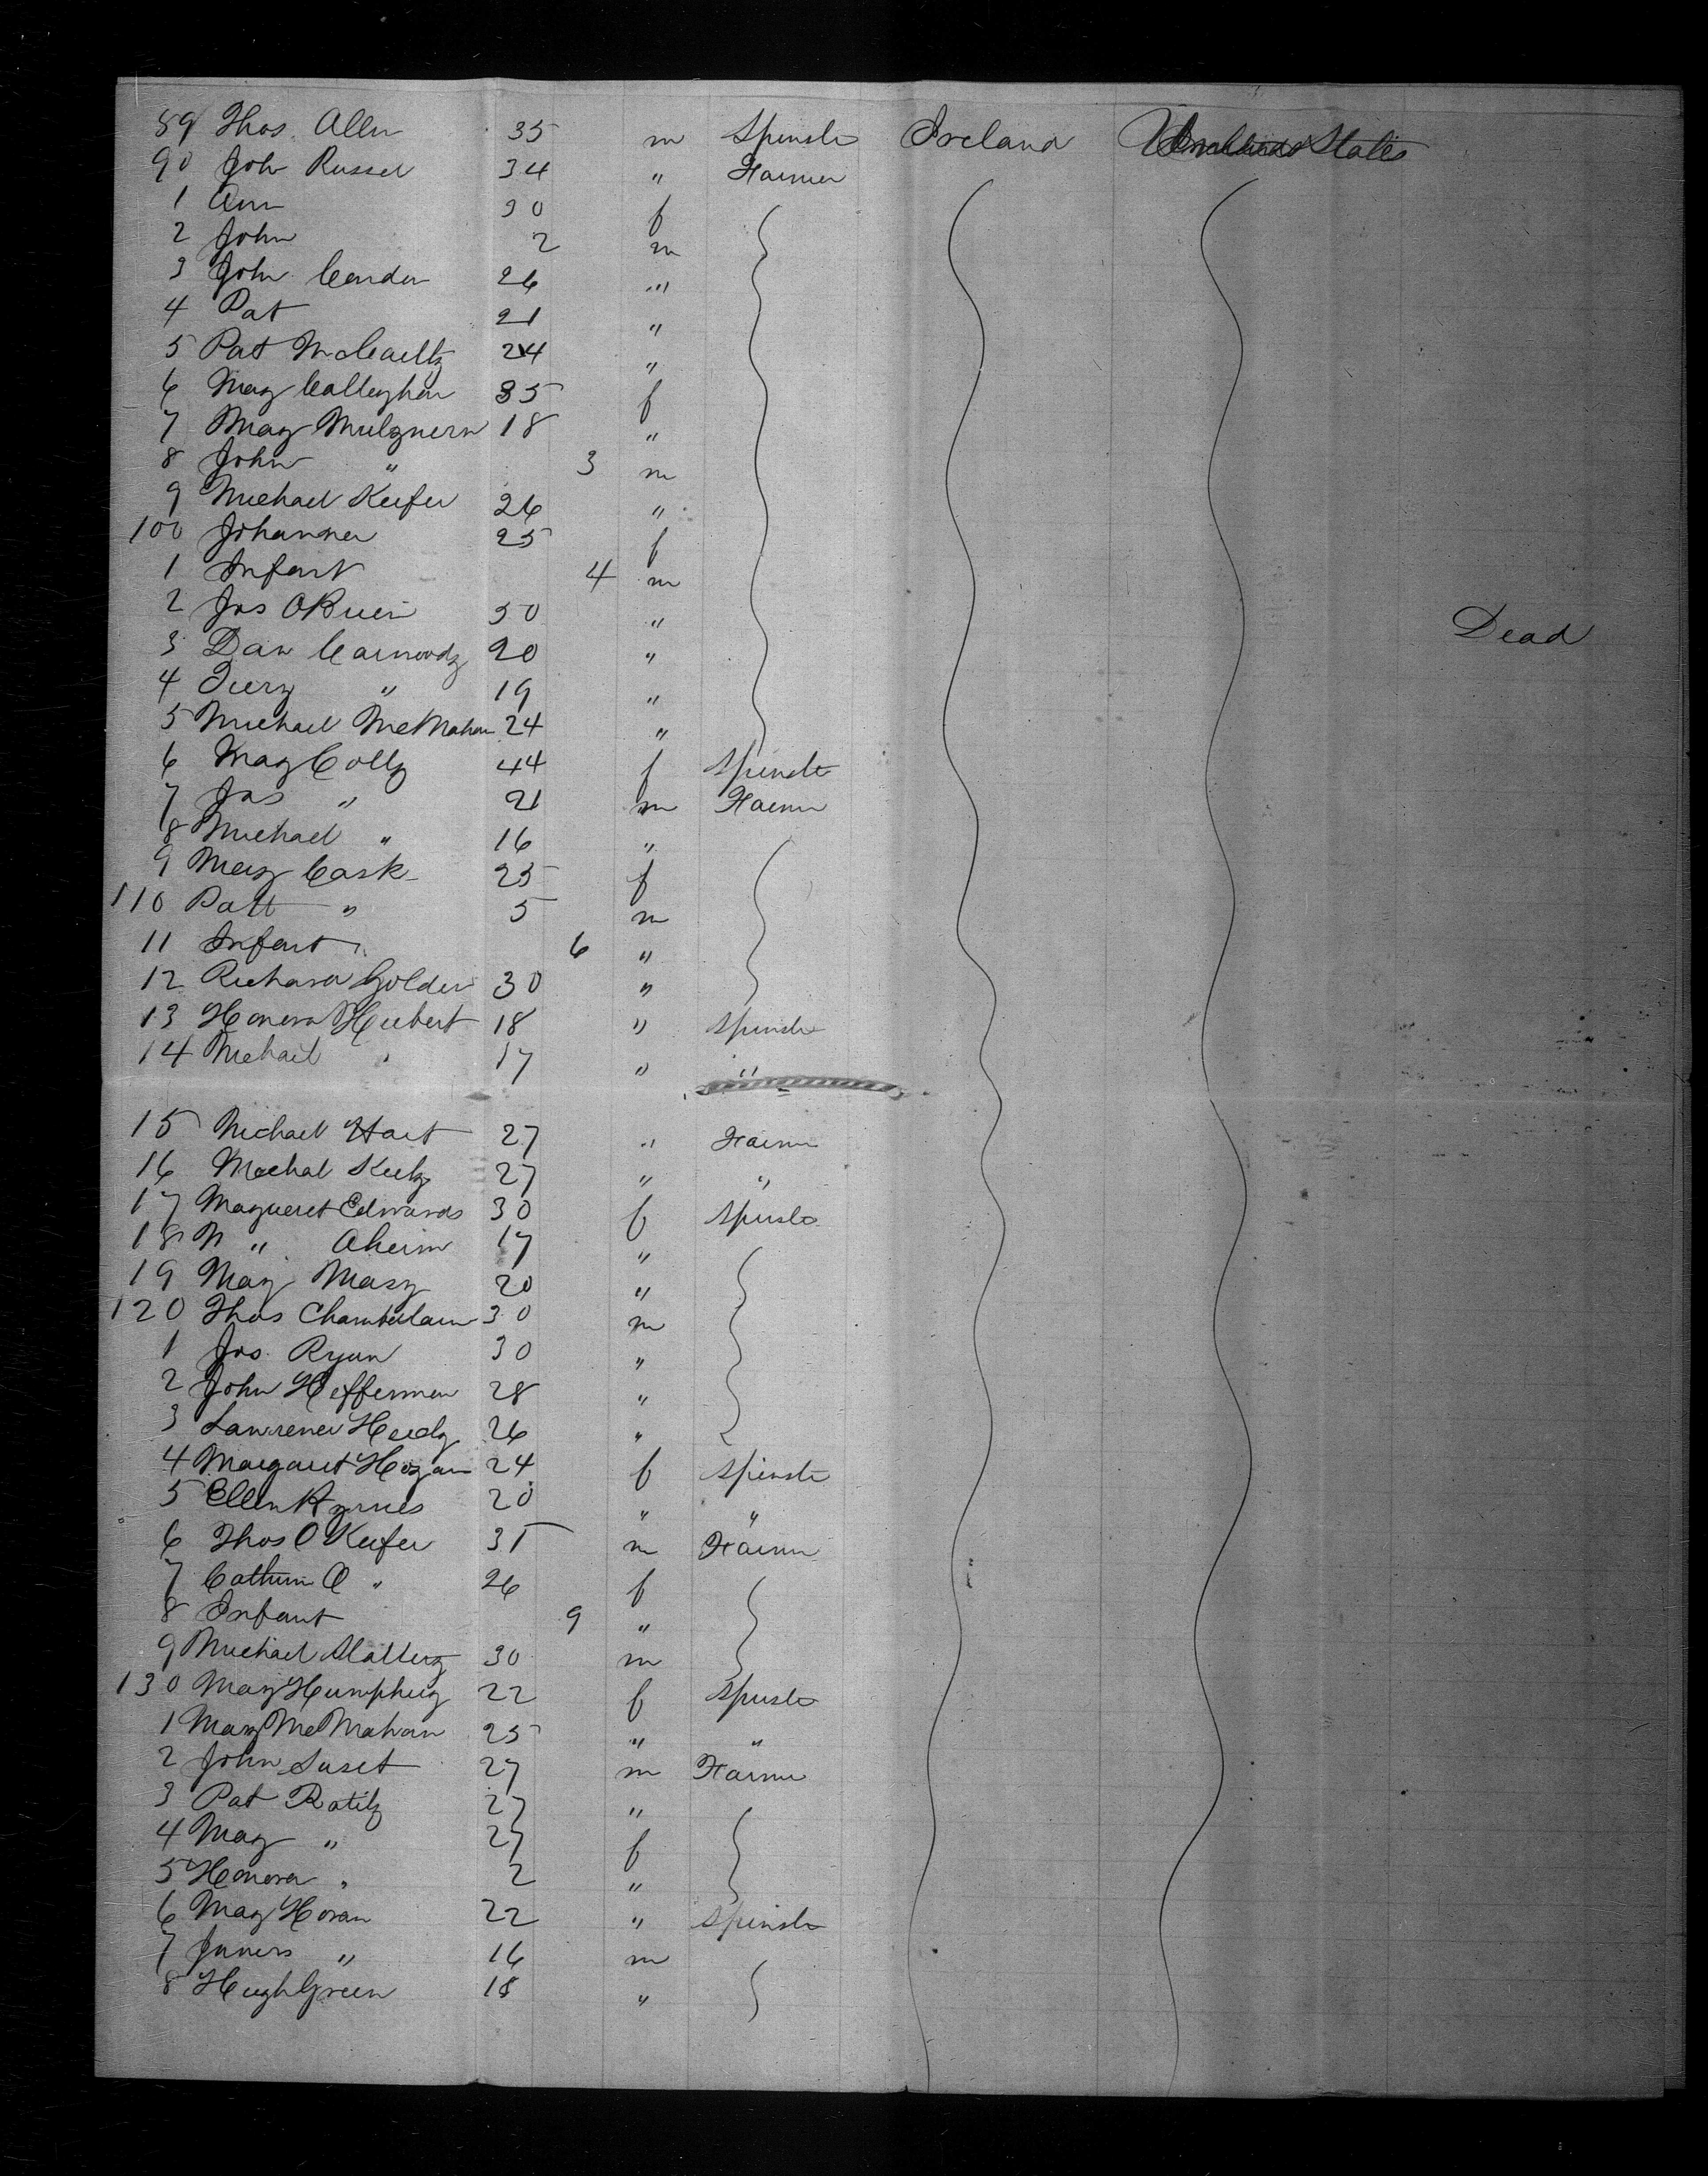 89 Thos. Allen 35 m Spinster Ireland United States
90 John Russel 34 " Farmer
1 Ann 30 f
2 John 2 m
3 John Conden 26 "
4 Pat 21 "
5 Pat McCarty 24 "
6 Mary Calleghan 35 f
7 Mary 18 "
8 John " 3 m
9 Michael Keefer 26 "
100 Johanna 25 f
1 Infant 4 m
2 Jas OBrien 50 " Dead
3 Dan Carmody 20 "
4 Terry " 19 "
5 Michael McMahon 24 "
6 Mary Colly 44 f Spinster
7 Jas " 21 m Farmer
8 Michael " 16 "
9 Mary Cask 25 f
110 Patt " 5 m
11 Infant 6 "
12 Richard Golden 30 "
13 Honora Herbert 18 " Spinster
14 Michael " 17 " "
15 Michael Hart 27 " Farmer
16 Michal Keely 27 " "
17 Margueret Edwards 30 f Spinster
18 M " Ahern 17 "
19 Mary Masy 20 "
120 Thos Chamberlain 30 m
1 Jas. Ryan 30 "
2 John Heffernan 28 "
3 Lawrence 26 "
4 Margaret Hogan 24 f Spinster
5 Ellen Hynes 20 " "
6 Thos O Keefer 35 m Farmer
7 Cathrin O " 26 f
8 Infant 9 "
9 Michael Slattery 30 m
130 Mary Humphrey 22 f Spinster
1 Mary McMahon 25 " "
2 John 27 m Farmer
3 Pat 27 "
4 Mary " 27 f
5 Honora " 2 "
6 Mary Horan 22 " Spinster
7 " 16 m
8 Hugh Green 18 "